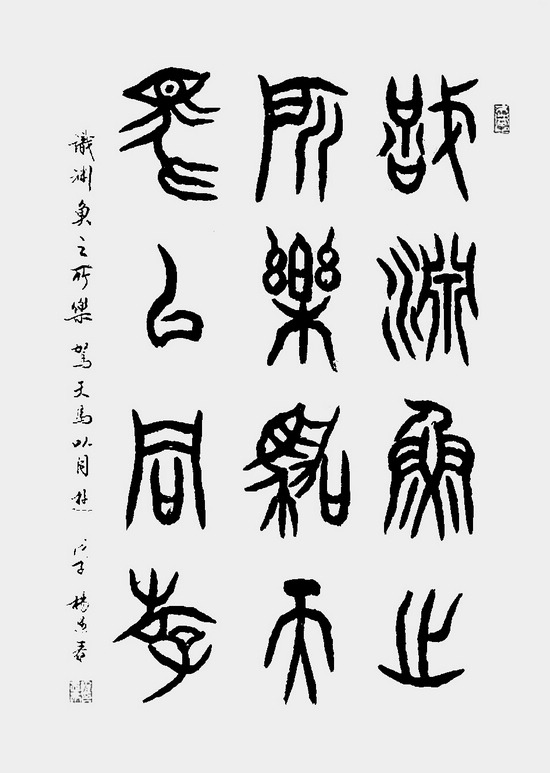 識淵魚之
所樂駕天
馬以同斿
識淵魚之所樂 駕天馬以同遊 戊子 楊春